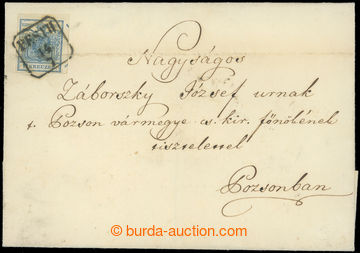 PESTH
KREUZER
Nagyságos
Záborszky József urnak
t. Pozson vármegye cs. kir. főnökének
tisztelettel
Pozsonban
burda-auction.com